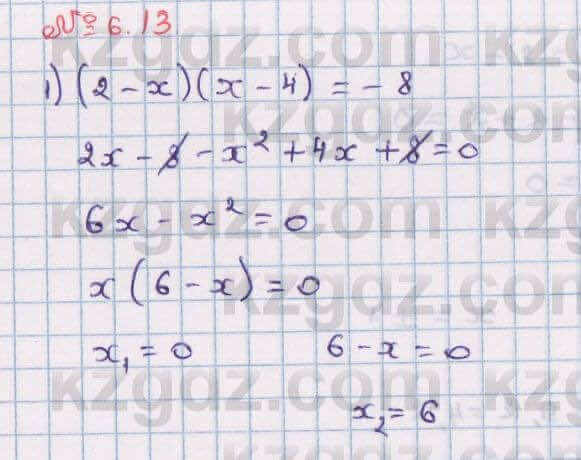 № 6.13
1) (2 - x)(x - 4) = - 8
2x - 8 - x² + 4x + 8 = 0
6x - x² = 0
x (6 - x) = 0
x₁ = 0 6 - x = 0
x₂ = 6
kzgdz.com